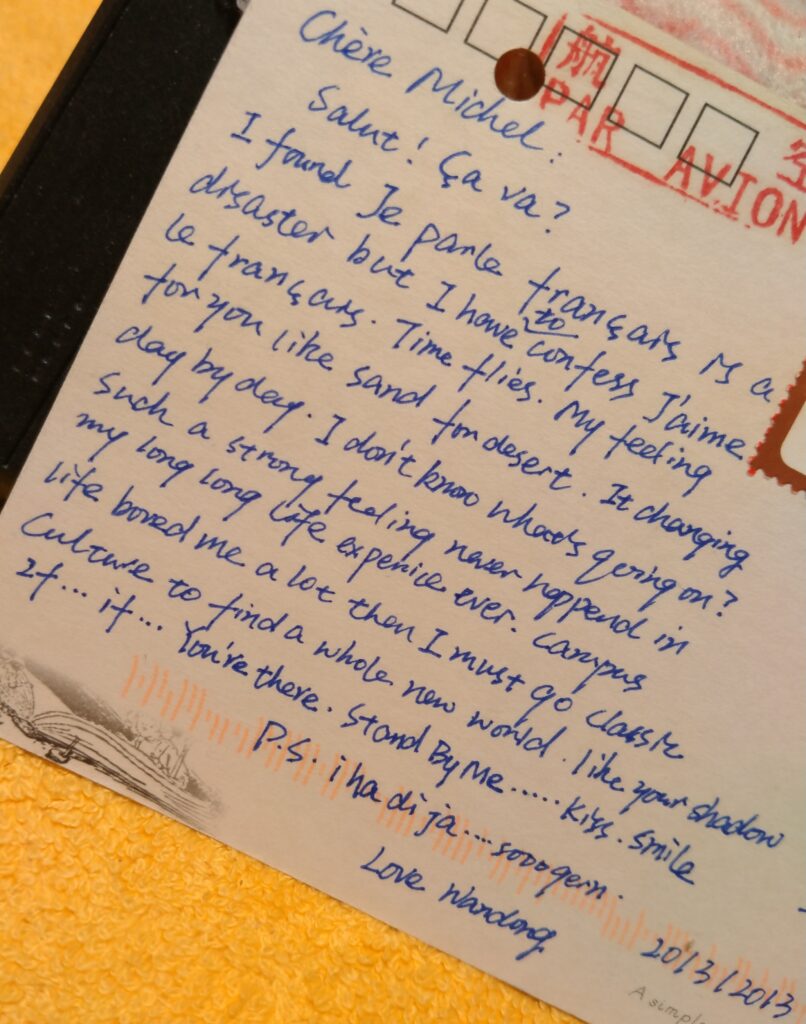 航 空
PAR AVION
Chère Michel:
Salut! Ça va?
I found Je parle français is a
disaster but I have to confess J'aime
le français. Time flies. My feeling
for you like sand for desert. It changing
day by day. I don't know what's going on?
Such a strong feeling never happend in
my long long life experice ever. Campus
life bored me a lot then I must go classic
Culture to find a whole new world. like your shadow
If... if... You're there. Stand By Me..... Kiss. Smile
P.S. i ha di ja....soooogern.
Love Wandong
20/3/2013
A simple